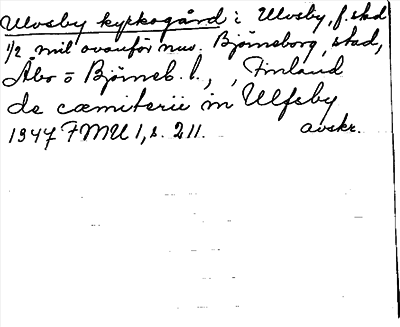 Ulvsby kyrkogård i Ulvsby, f. stad
1/2 mil ovanför nuv. Björneborg, stad,
Åbo o Björneb. l., , Finland
de cæmiterii in Ulfsby
1347 FMU 1, s. 211. avskr.